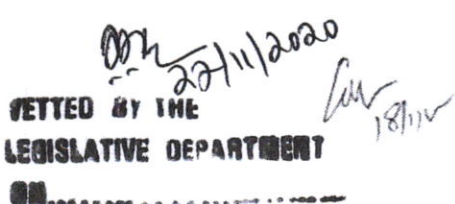 22/11/2020
VETTED BY THE
LEGISLATIVE DEPARTMENT
ON